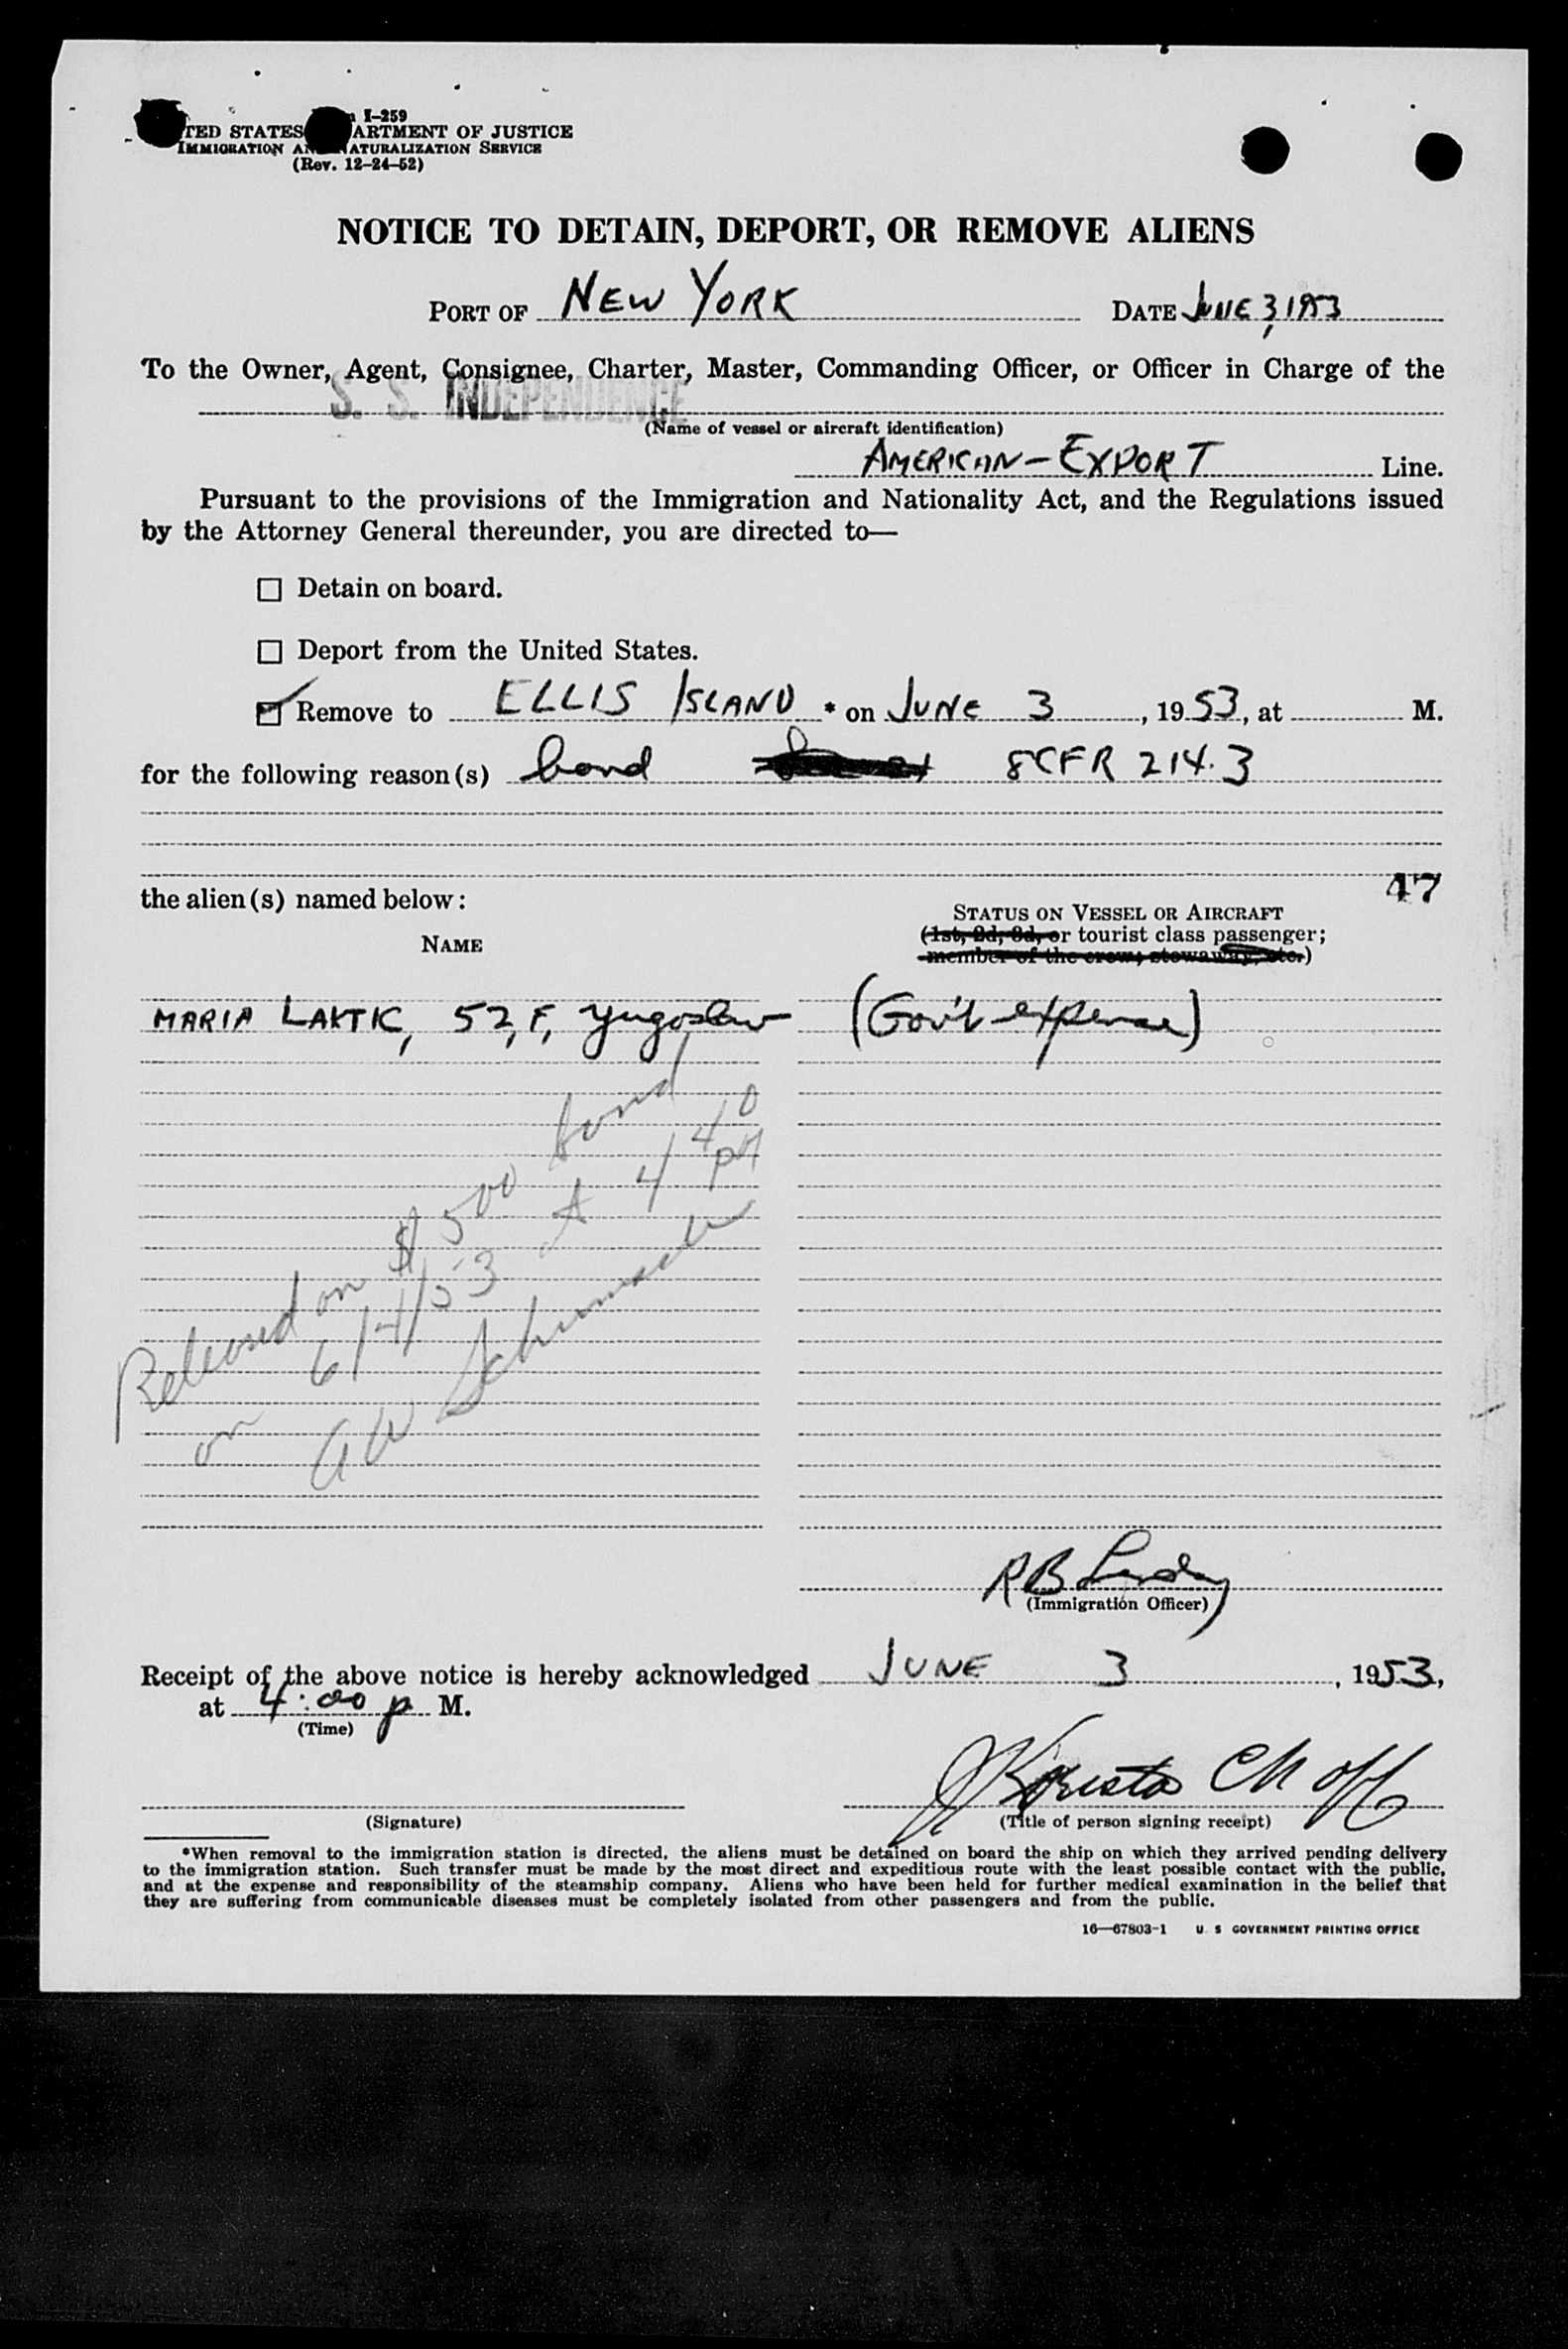 I-259
TED STATES ARTMENT OF JUSTICE
IMMIGRATION AN NATURALIZATION SERVICE
(Rev. 12-24-52)
NOTICE TO DETAIN, DEPORT, OR REMOVE ALIENS
PORT OF NEW YORK DATE JUNE 3, 1953
To the Owner, Agent, Consignee, Charter, Master, Commanding Officer, or Officer in Charge of the
S. S. INDEPENDENCE
(Name of vessel or aircraft identification)
AMERICAN-EXPORT Line.
Pursuant to the provisions of the Immigration and Nationality Act, and the Regulations issued
by the Attorney General thereunder, you are directed to—
Detain on board.
Deport from the United States.
Remove to ELLIS ISLAND * on JUNE 3, 1953, at M.
for the following reason(s) bond 8CFR 214.3
47
the alien(s) named below:
STATUS ON VESSEL OR AIRCRAFT
NAME (1st, 2d, 3d, or tourist class passenger;
member of the crew; stowaway, etc.)
MARIA LAKTIC, 52, F, Yugoslav (Gov't expense)
Released on $500 bond
on 6/4/53 at 4 40 PM
GW Schumacher
R B
(Immigration Officer)
Receipt of the above notice is hereby acknowledged JUNE 3, 1953,
at 4:00 p M.
(Time)
Ch Off
(Signature) (Title of person signing receipt)
*When removal to the immigration station is directed, the aliens must be detained on board the ship on which they arrived pending delivery
to the immigration station. Such transfer must be made by the most direct and expeditious route with the least possible contact with the public,
and at the expense and responsibility of the steamship company. Aliens who have been held for further medical examination in the belief that
they are suffering from communicable diseases must be completely isolated from other passengers and from the public.
16—67803-1 U S GOVERNMENT PRINTING OFFICE